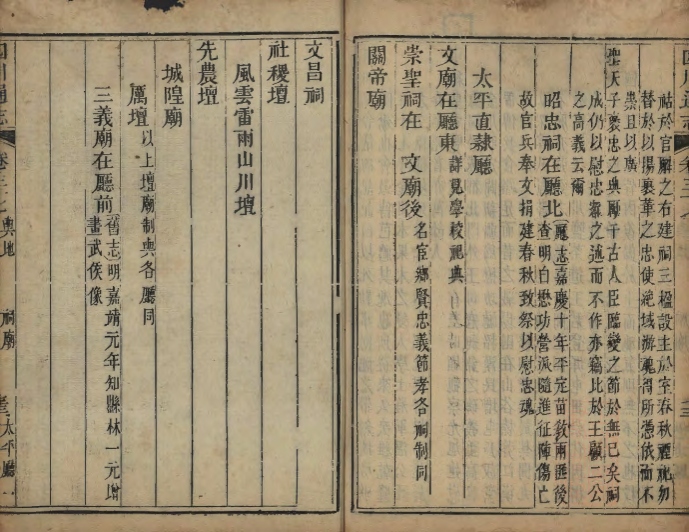 祜於官廨之右建祠三楹設主於室春秋禋祀勿
替於以揚襄華之忠使絶域游魂得所憑依而不
祟且以廣
聖天子褒忠之典厲千古人臣臨變之節於無已矣祠
成仍以慰忠爲之述而不作亦竊比於王顧二公
之高義云爾
昭忠祠在廳北廳志嘉慶十年平定苗敎兩匪後
查明白懋功營派隨進征陣傷亡
故官兵奉文捐建春秋致祭以慰忠魂
太平直隸廳
文廟在廳東詳見學校祀典
崇聖祠在 文廟後名宦鄉賢忠義節孝各祠制同
關帝廟
文昌祠
社稷壇
風雲雷雨山川壇
先農壇
城隍廟
厲壇以上壇廟制與各廳同
三義廟在廳前舊志明嘉靖元年知縣林一元增
畫武侯像
四川通志 卷三十七 輿地 祠廟 太平廳一